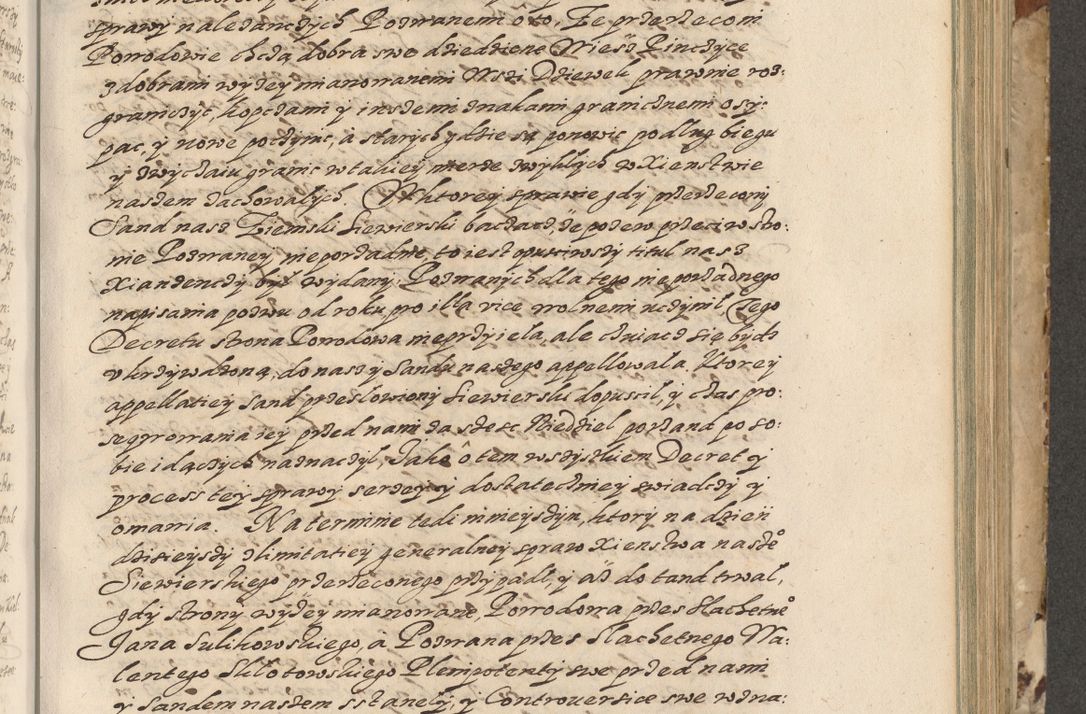 sprawy należących Pozwanem o to, Ze przerzecom
Powodowie chcą dobra swe dziedzicne Wieś Pinczyce
z dobrami wyzey mianowanemi Wszi Dziewek prawnie roz:
graniczyc, kopczami y inszemi znakami granicznemi osy:
pac, y nowe poczynic, a starych gdzie są ponowic podlug biegu
y zwyczaiu granic w takiey mierze zwykłych w Xienstwie
naszem zachowałych. W ktorey sprawie gdy przerzeczony
Sand nasz Ziemski Siewierski bacząc, ze pozew przeciw stro:
nie Pozwaney nieporządnie, to iest opusciwszy titul nasz
Xiandenczy był wydany Pozwanych dla tego nieporządnego
napisania pozwu od roku pro illa vice wolnemi uczynił, Tego
Decretu strona Powodowa nieprzyiela, ale chciacz się bydz
vkrzywdzoną, do nas y Sandu naszego appellowala. Ktorey
appellatiey Sand przeslowiony Siewierski dopuscił, y czas pro:
seqwowania iey przed nami za szesc Niedziel porzand po so:
bie idączych naznaczył, Jako o tem wszystkiem Decret y
process tey sprawy szerzey y dostateczniey swiadczy y
omawia. Na terminie tedi ninieyszym, ktory na dzień
dzisieyszy z limitatiey generalney spraw Xienstwa naszeº
Siewierskiego przerzeconego przypadl, y aż do tand trwal,
gdy strony wyżey mianowane, Powodowa przes Slachetneº
Jana Sulikowskiego, à Pozwana przes Slachetnego Wa:
lentego Sulotowskiego Plenipotenty swe przed nami
y Sandem naszem sstanely, y Controversice swe wzna: